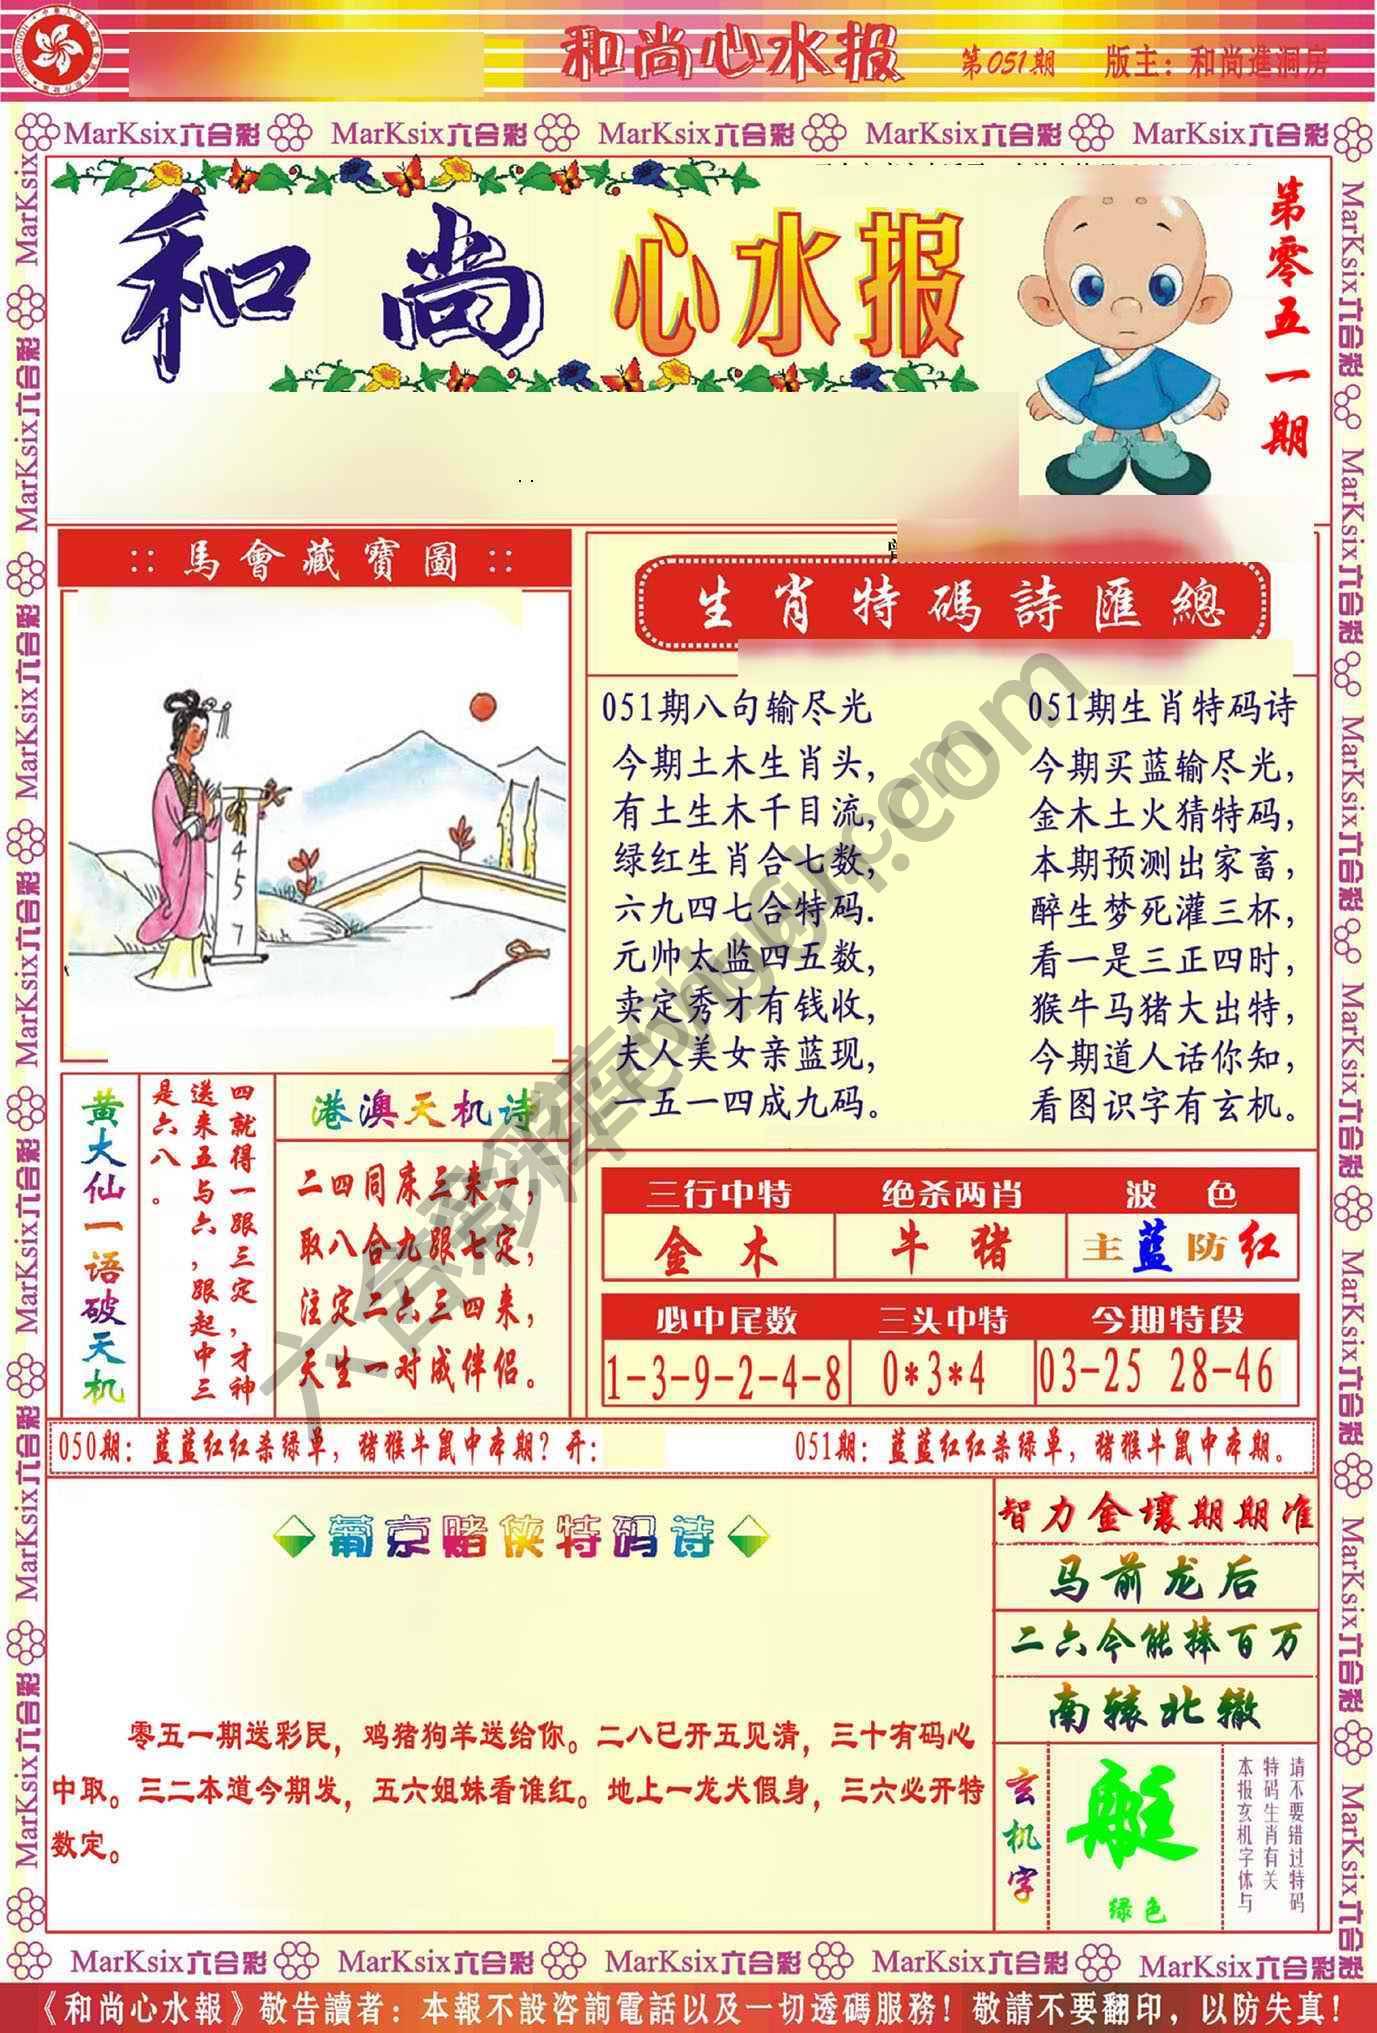 和尚心水报 第051期 版主：和尚進洞房
MarKsix六合彩 MarKsix六合彩 MarKsix六合彩 MarKsix六合彩 MarKsix六合彩
和尚心水报
第零五一期
::馬會藏寶圖::
4
5
7
生肖特碼詩匯總
051期八句输尽光
今期土木生肖头，
有土生木千目流，
绿红生肖合七数，
六九四七合特码.
元帅太监四五数，
卖定秀才有钱收，
夫人美女亲蓝现，
一五一四成九码。
051期生肖特码诗
今期买蓝输尽光，
金木土火猜特码，
本期预测出家畜，
醉生梦死灌三杯，
看一是三正四时，
猴牛马猪大出特，
今期道人话你知，
看图识字有玄机。
黄大仙一语破天机
四就得一跟三定，才神
送来五与六，跟起中三
是六八。
港澳天机诗
二四同床三来一，
取八合九跟七定，
注定二六三四来，
天生一对成伴侣。
三行中特 绝杀两肖 波色
金木 牛猪 主蓝防红
必中尾数 三头中特 今期特段
1-3-9-2-4-8 0*3*4 03-25 28-46
050期：蓝蓝红红杀绿单，猪猴牛鼠中本期？开：
051期：蓝蓝红红杀绿单，猪猴牛鼠中本期。
葡京赌侠特码诗
零五一期送彩民，鸡猪狗羊送给你。二八已开五见清，三十有码心
中取。三二本道今期发，五六姐妹看谁红。地上一龙犬假身，三六必开特
数定。
智力金壤期期准
马前龙后
二六今能捧百万
南辕北辙
玄机字
艇
绿色
请不要错过特码
特码生肖有关
本报玄机字体与
MarKsix六合彩 MarKsix六合彩 MarKsix六合彩 MarKsix六合彩 MarKsix六合彩
《和尚心水報》敬告讀者：本報不設咨詢電話以及一切透碼服務！敬請不要翻印，以防失真！